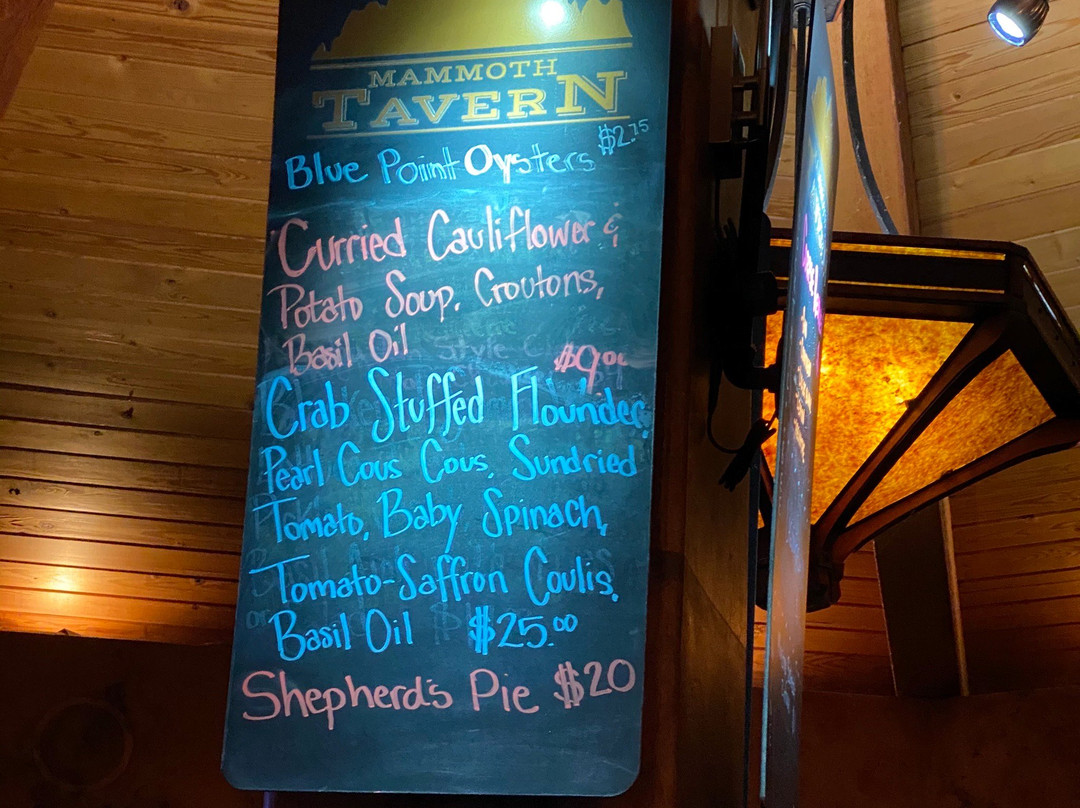 MAMMOTH
TAVERN
Blue Point Oysters $2.75
Curried Cauliflower &
Potato Soup, Croutons,
Basil Oil $9.00
Crab Stuffed Flounder,
Pearl Cous Cous, Sundried
Tomato, Baby Spinach,
Tomato-Saffron Coulis,
Basil Oil $25.00
Shepherd's Pie $20